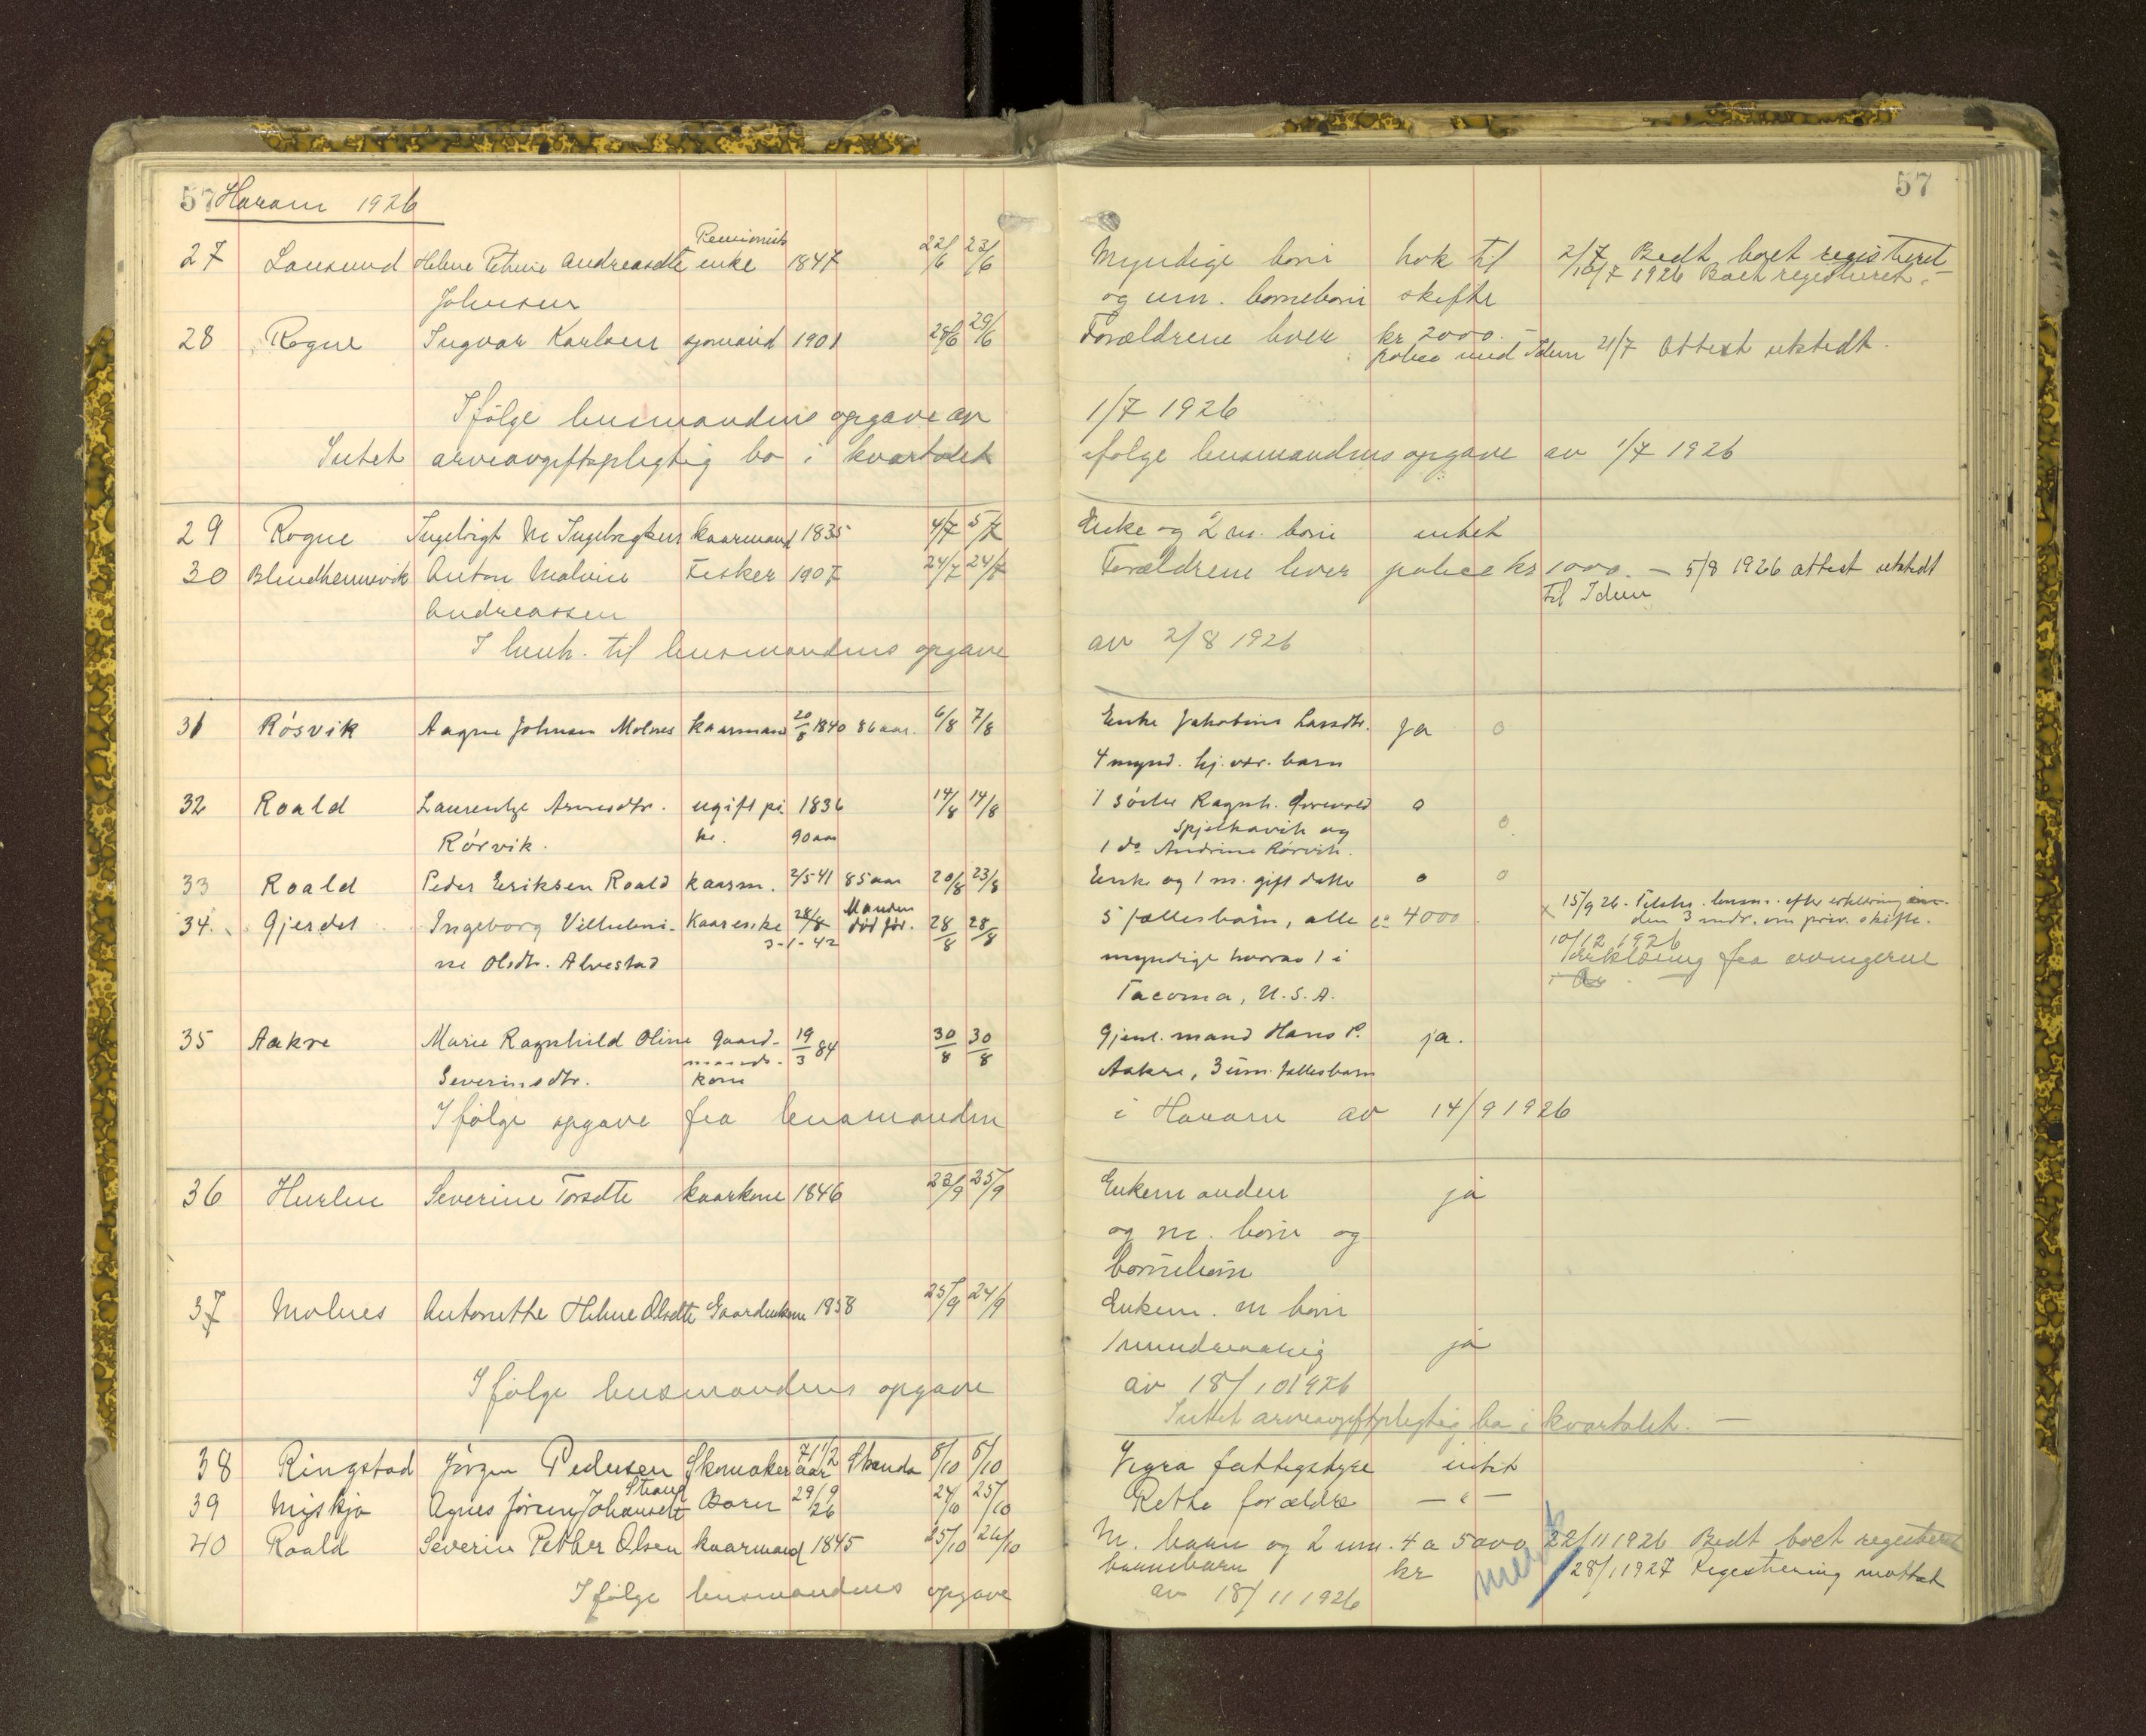 57 Haram 1926
57
27 Lausund Helene Petrine Andreasdtr Pensionists enke 1847 22/6 23/6 Myndige børn nok til 2/7 Bedt boet registreret
Johnsen og um. børnebørn skifte 10/7 1926 Boet registreret.
28 Rogne Ingvar Karlsen sjømand 1901 28/6 29/6 Forældrene lever kr 2000.-
police med Idun 21/7 Attest utstedt.
Ifølge lensmandens opgave av 1/7 1926
Intet arveavgiftspligtig bo i kvartalet ifølge lensmandens opgave av 1/7 1926
29 Rogne Ingebrigt M Ingebrigtsen kaarmand 1835 4/7 5/7 Enke og 2 m. børn intet
30 Blindheimsvik Anton Malvin Fisker 1907 24/7 24/7 Forældrene lever police kr 1000.- 5/8 1926 attest utstedt
Andreassen til Idun
I henh. til lensmandens opgave av 2/8 1926
31 Røsvik Aagne Johnsen Molnes kaarmand 20/8 1840 86 aar. 6/8 7/8 Enke Jakobine Larsdtr. Ja 0
4 mynd. hj. vær. barn
32 Roald Laurentze Arnesdtr. ugift pi- 1836 14/8 14/8 1 søster Ragnh. 0
Rørvik. ke. 90 aar Spjelkavik og 0
1 do Andrine Rørvik.
33 Roald Peder Eriksen Roald kaarm. 2/5 41 85 aar 20/8 23/8 Enke og 1 m. gift datter 0 0
34. Gjerdet Ingeborg Vilhelmi- Kaarenke 28/8 Manden død før. 28/8 28/8 5 fællesbarn, alle ca 4000 x 15/9 26. Tilskr. lensm. efter erklæring in-
3-1-42 den 3 mdr. om priv. skifte.
ne Olsdtr. Alvestad myndige hvorav 1 i 10/12 1926
Erklæring fra arvingerne
Tacoma, U.S.A.
35 Aakre Marie Ragnhild Oline gaard- 19/3 84 30/8 30/8 Gjenl. mand Hans P. ja.
Severinsdtr. mands- kone Aakre, 3 um. fællesbarn
Ifølge opgave fra lensmanden i Haram av 14/9 1926
36 Hurlen Severine Torsdtr kaarkone 1846 23/9 25/9 Enkemanden ja
og m. børn og
børnebørn
37 Molnes Antonette Helene Olsdtr Gaardmkone 1858 25/9 24/9 Enkem. m børn
1 mindreaarig ja
Ifølge lensmandens opgave av 18/10 1926
Intet arveavgiftpligtig bo i kvartalet. -
38 Ringstad Jørgen Pedersen Skomaker 71 1/2 aar Stranda 5/10 5/10 Vigra fattigstyre intet
39 Myskja Agnes Jørине Johansdtr Strand Barn 29/9 26 24/10 25/10 Rette forældre - " -
40 Roald Severin Petter Olsen kaarmand 1845 25/10 26/10 M. barn og 2 um. 4 a 5000 22/11 1926 Bedt boet registreret
barnebarn kr 28/1 1927 Registrering mottat
Ifølge lensmandens opgave av 18/11 1926